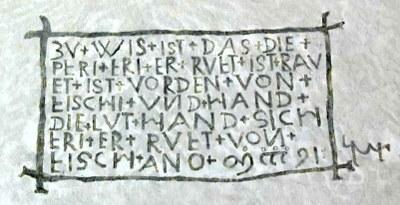 ZV+WIS+IST+DAS+DIE+
PERI+ERI+ER+RVET+IST+RAV
ET+IST+VORDEN+VON+
LISCHI+VND+HAND+
DIE+LVT+HAND+SICH
ERI+ER+RVET+VON+
LISCH+ANO+